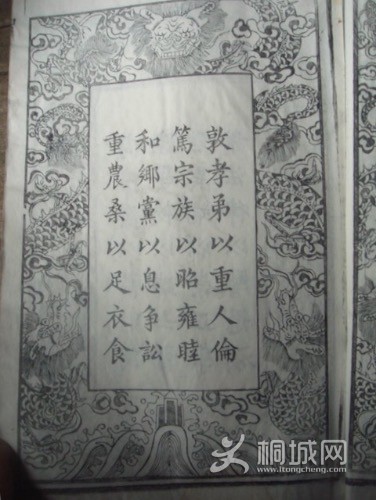 敦孝弟以重人倫
篤宗族以昭雍睦
和鄉黨以息争訟
重農桑以足衣食
桐城网
www.itongcheng.com